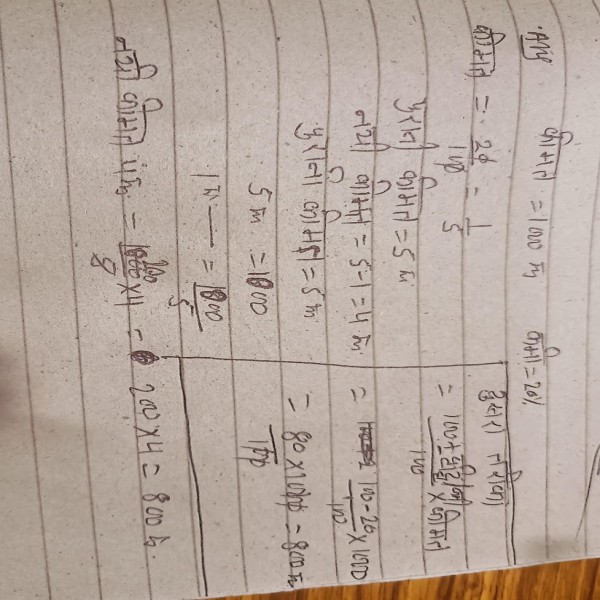 Ans कीमत = 1000 रु कमी = 20%
कीमत = 20/100 = 1/5
पुरानी कीमत = 5 रु
नयी कीमत = 5-1 = 4 रु
पुरानी कीमत = 5 रु
5 रु = 1000
1 रु — = 1000/5
नयी कीमत 4 रु = 1000/5 ×4 = 200×4 = 800 रु.
दूसरा तरीका
= 100±वृद्धि/कमी/100 × कीमत
= 100-20/100 ×1000
= 80×1000/100 = 800 रु